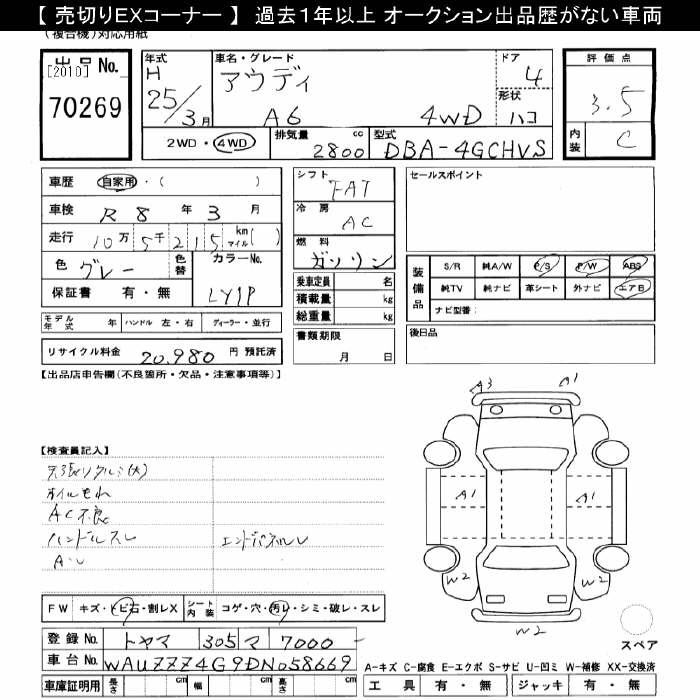 【 売切りEXコーナー 】 過去１年以上 オークション出品歴がない車両
(複合機)対応用紙
出品No.
[2010]
70269
年式
H
25/3月
車名・グレード
アウディ
A6
4WD
ドア
4
形状
ハコ
評価点
3.5
内装
C
2WD・4WD
排気量 2800 cc
型式 DBA-4GCHVS
車歴 自家用・( )
車検 R 8 年 3 月
走行 10万 5千 215 km マイル( )
色 グレー
色替
カラーNo.
LY1P
保証書 有・無
モデル年式 年 ハンドル 左・右 ディーラー・並行
リサイクル料金 20,980 円 預託済
シフト
FAT
冷房
AC
燃料
ガソリン
乗車定員 名
積載量 kg
総重量 kg
書類期限
月 日
セールスポイント
装備品
S/R 純A/W P/S P/W ABS
純TV 純ナビ 革シート 外ナビ エアB
ナビ型番:
後日品
【出品店申告欄(不良箇所・欠品・注意事項等)】
【検査員記入】
天張りタルミ(大)
ホイルモれ
AC不良
ハンドルスレ
エンドパネルレ
A3
A1
A1
A1
W2
W2
W2
スペア
FW キズ・トビ石・割レX
シート内装 コゲ・穴・汚レ・シミ・破レ・スレ
登録No. トヤマ 305 マ 7000
車台No. WAUZZZ4G9DN058669
車庫証明用 長さ cm 幅 cm 高さ cm
A-キズ C-腐食 E-エクボ S-サビ U-凹ミ W-補修 XX-交換済
工具 有・無 ジャッキ 有・無